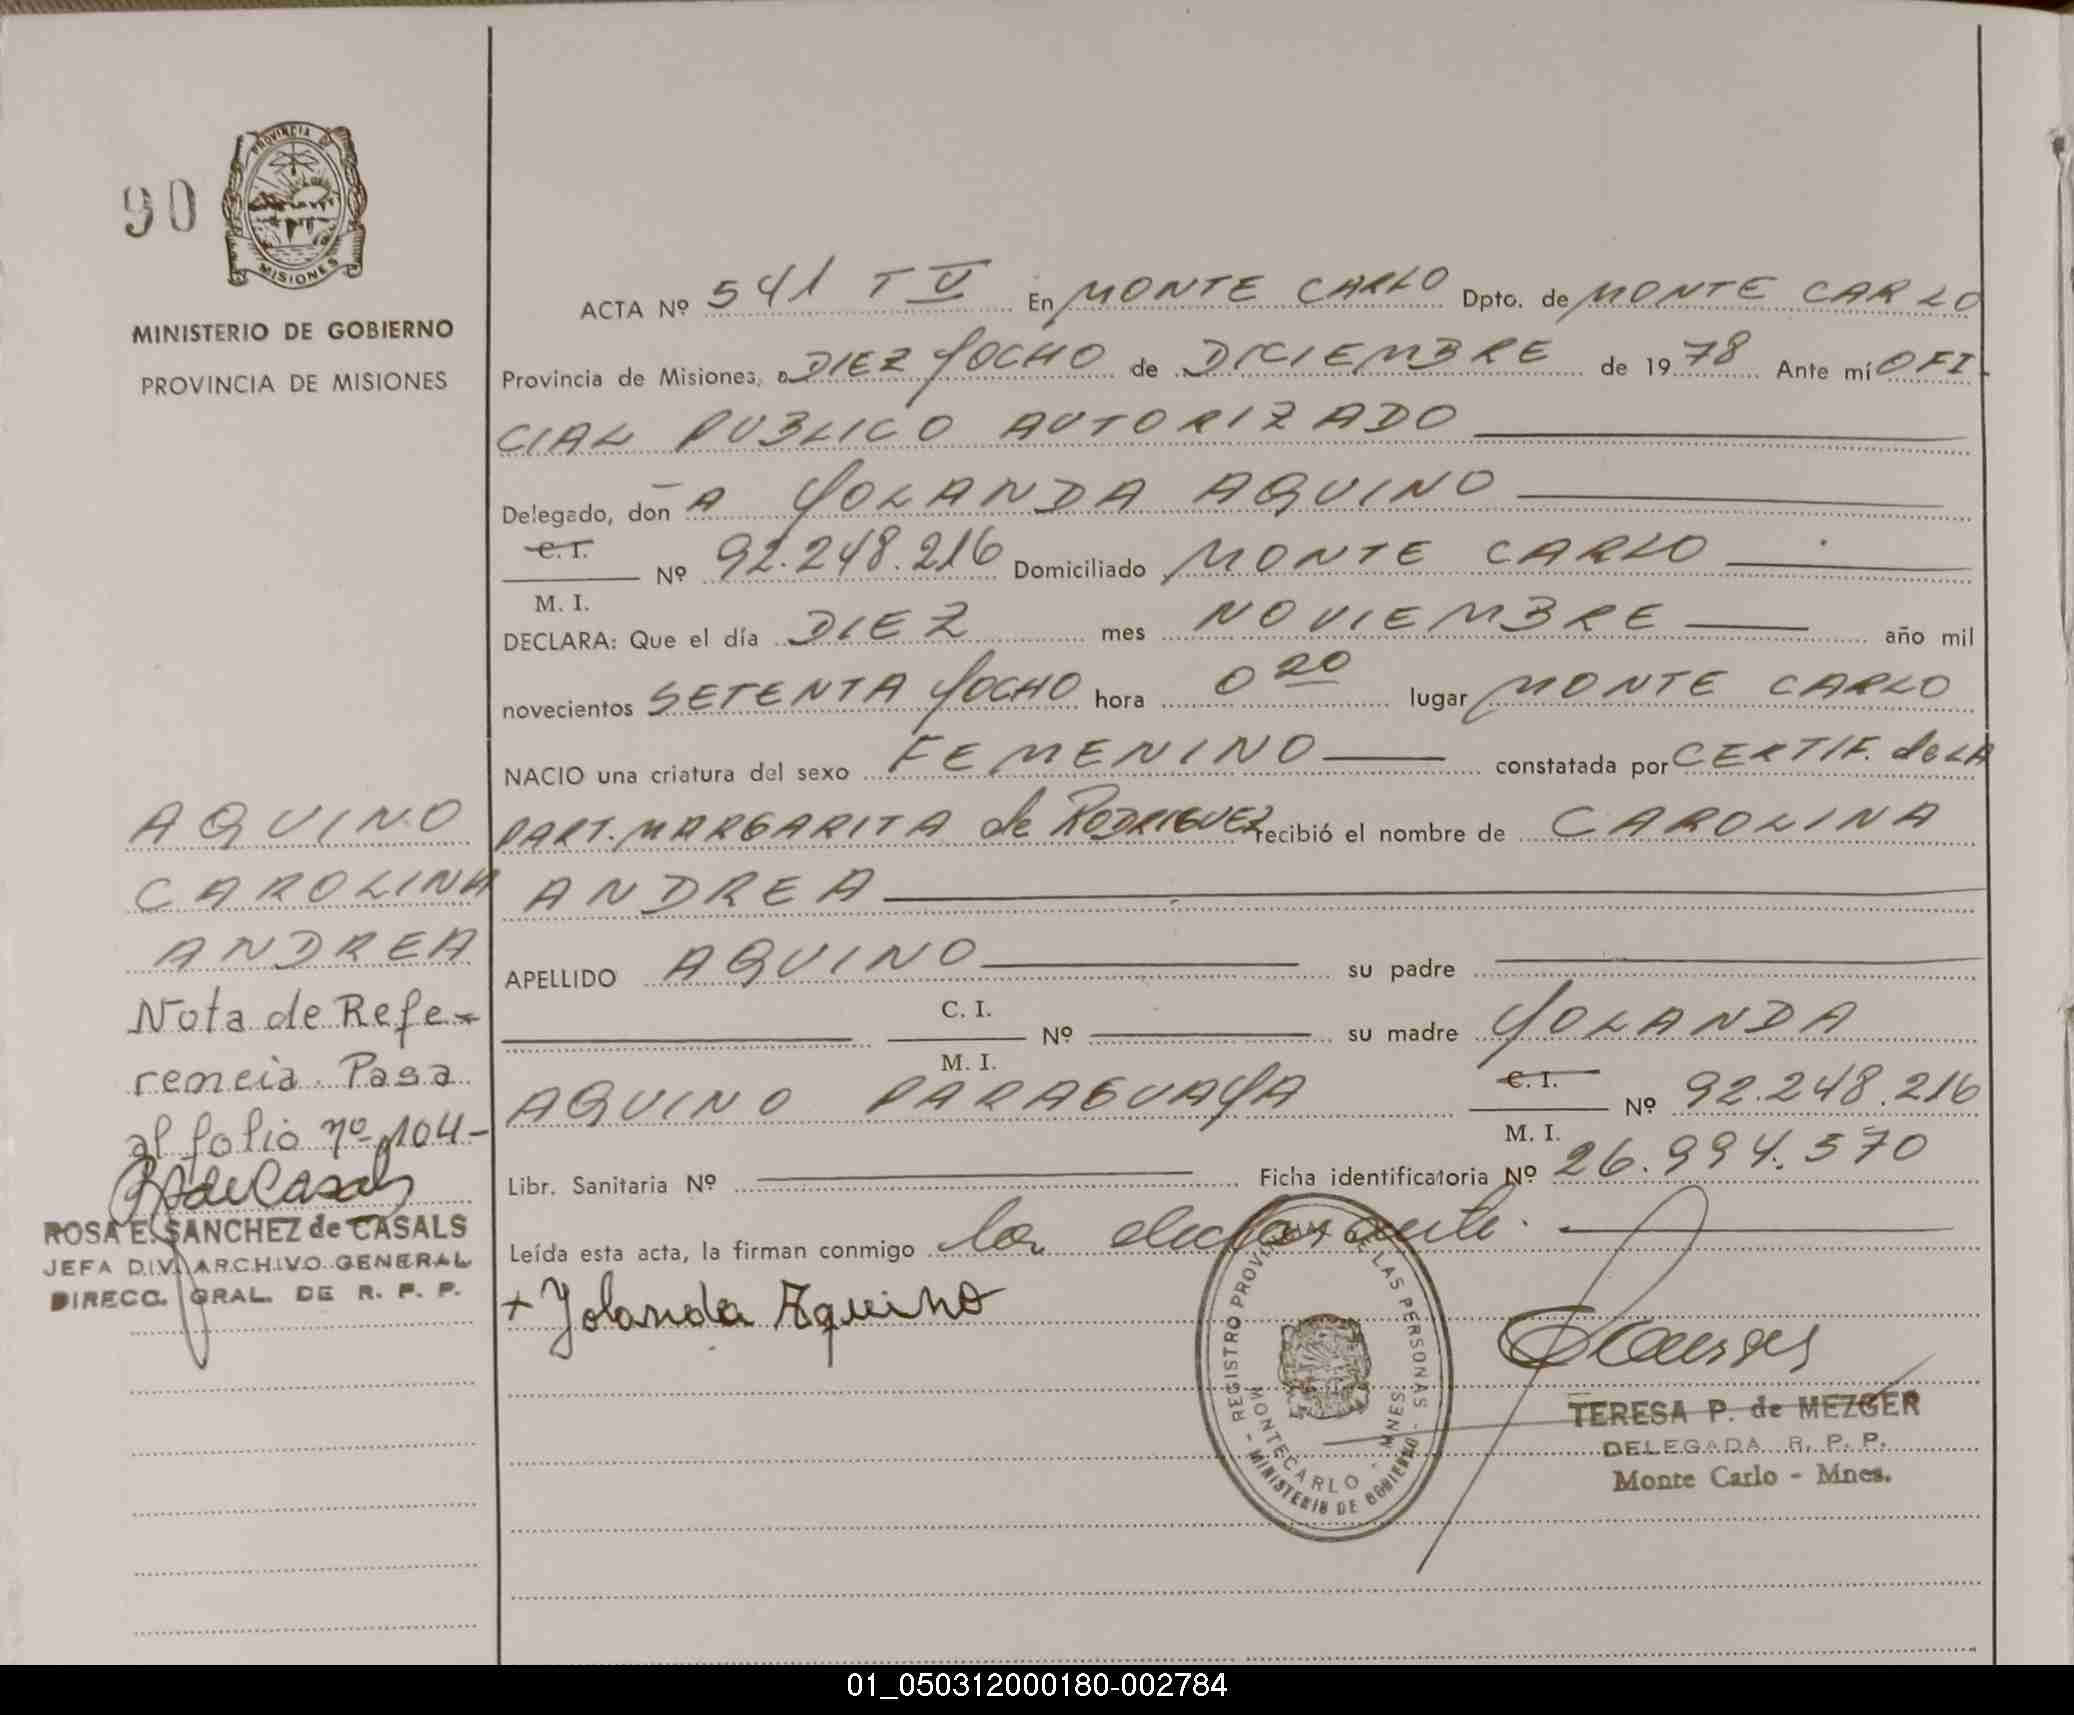 90
PROVINCIA DE
MISIONES
MINISTERIO DE GOBIERNO
PROVINCIA DE MISIONES
ACTA Nº 541 T V En MONTE CARLO Dpto. de MONTE CARLO
Provincia de Misiones, a DIEZ YOCHO de DICIEMBRE de 1978 Ante mí OFI-
CIAL PUBLICO AUTORIZADO
Delegado, don A YOLANDA AQUINO
C. I.
Nº 92.248.216 Domiciliado MONTE CARLO
M. I.
DECLARA: Que el día DIEZ mes NOVIEMBRE año mil
novecientos SETENTA YOCHO hora 0 20 lugar MONTE CARLO
NACIO una criatura del sexo FEMENINO constatada por CERTIF. de LA
PART. MARGARITA de RODRIGUEZ recibió el nombre de CAROLINA
ANDREA
APELLIDO AQUINO su padre
C. I.
Nº su madre YOLANDA
M. I.
AQUINO PARAGUAYA C. I. Nº 92.248.216
M. I.
Libr. Sanitaria Nº Ficha identificatoria Nº 26.994.570
Leída esta acta, la firman conmigo la declarante.
+ Yolanda Aquino
AQUINO
CAROLINA
ANDREA
Nota de Refe-
rencia. Pasa
al folio nº 104-
ROSA E. SANCHEZ de CASALS
JEFA DIV. ARCHIVO GENERAL
DIRECC. GRAL. DE R. P. P.
REGISTRO PROVINCIAL DE LAS PERSONAS
MONTECARLO - MNES.
MINISTERIO DE GOBIERNO
TERESA P. de MEZGER
DELEGADA R. P. P.
Monte Carlo - Mnes.
01_050312000180-002784